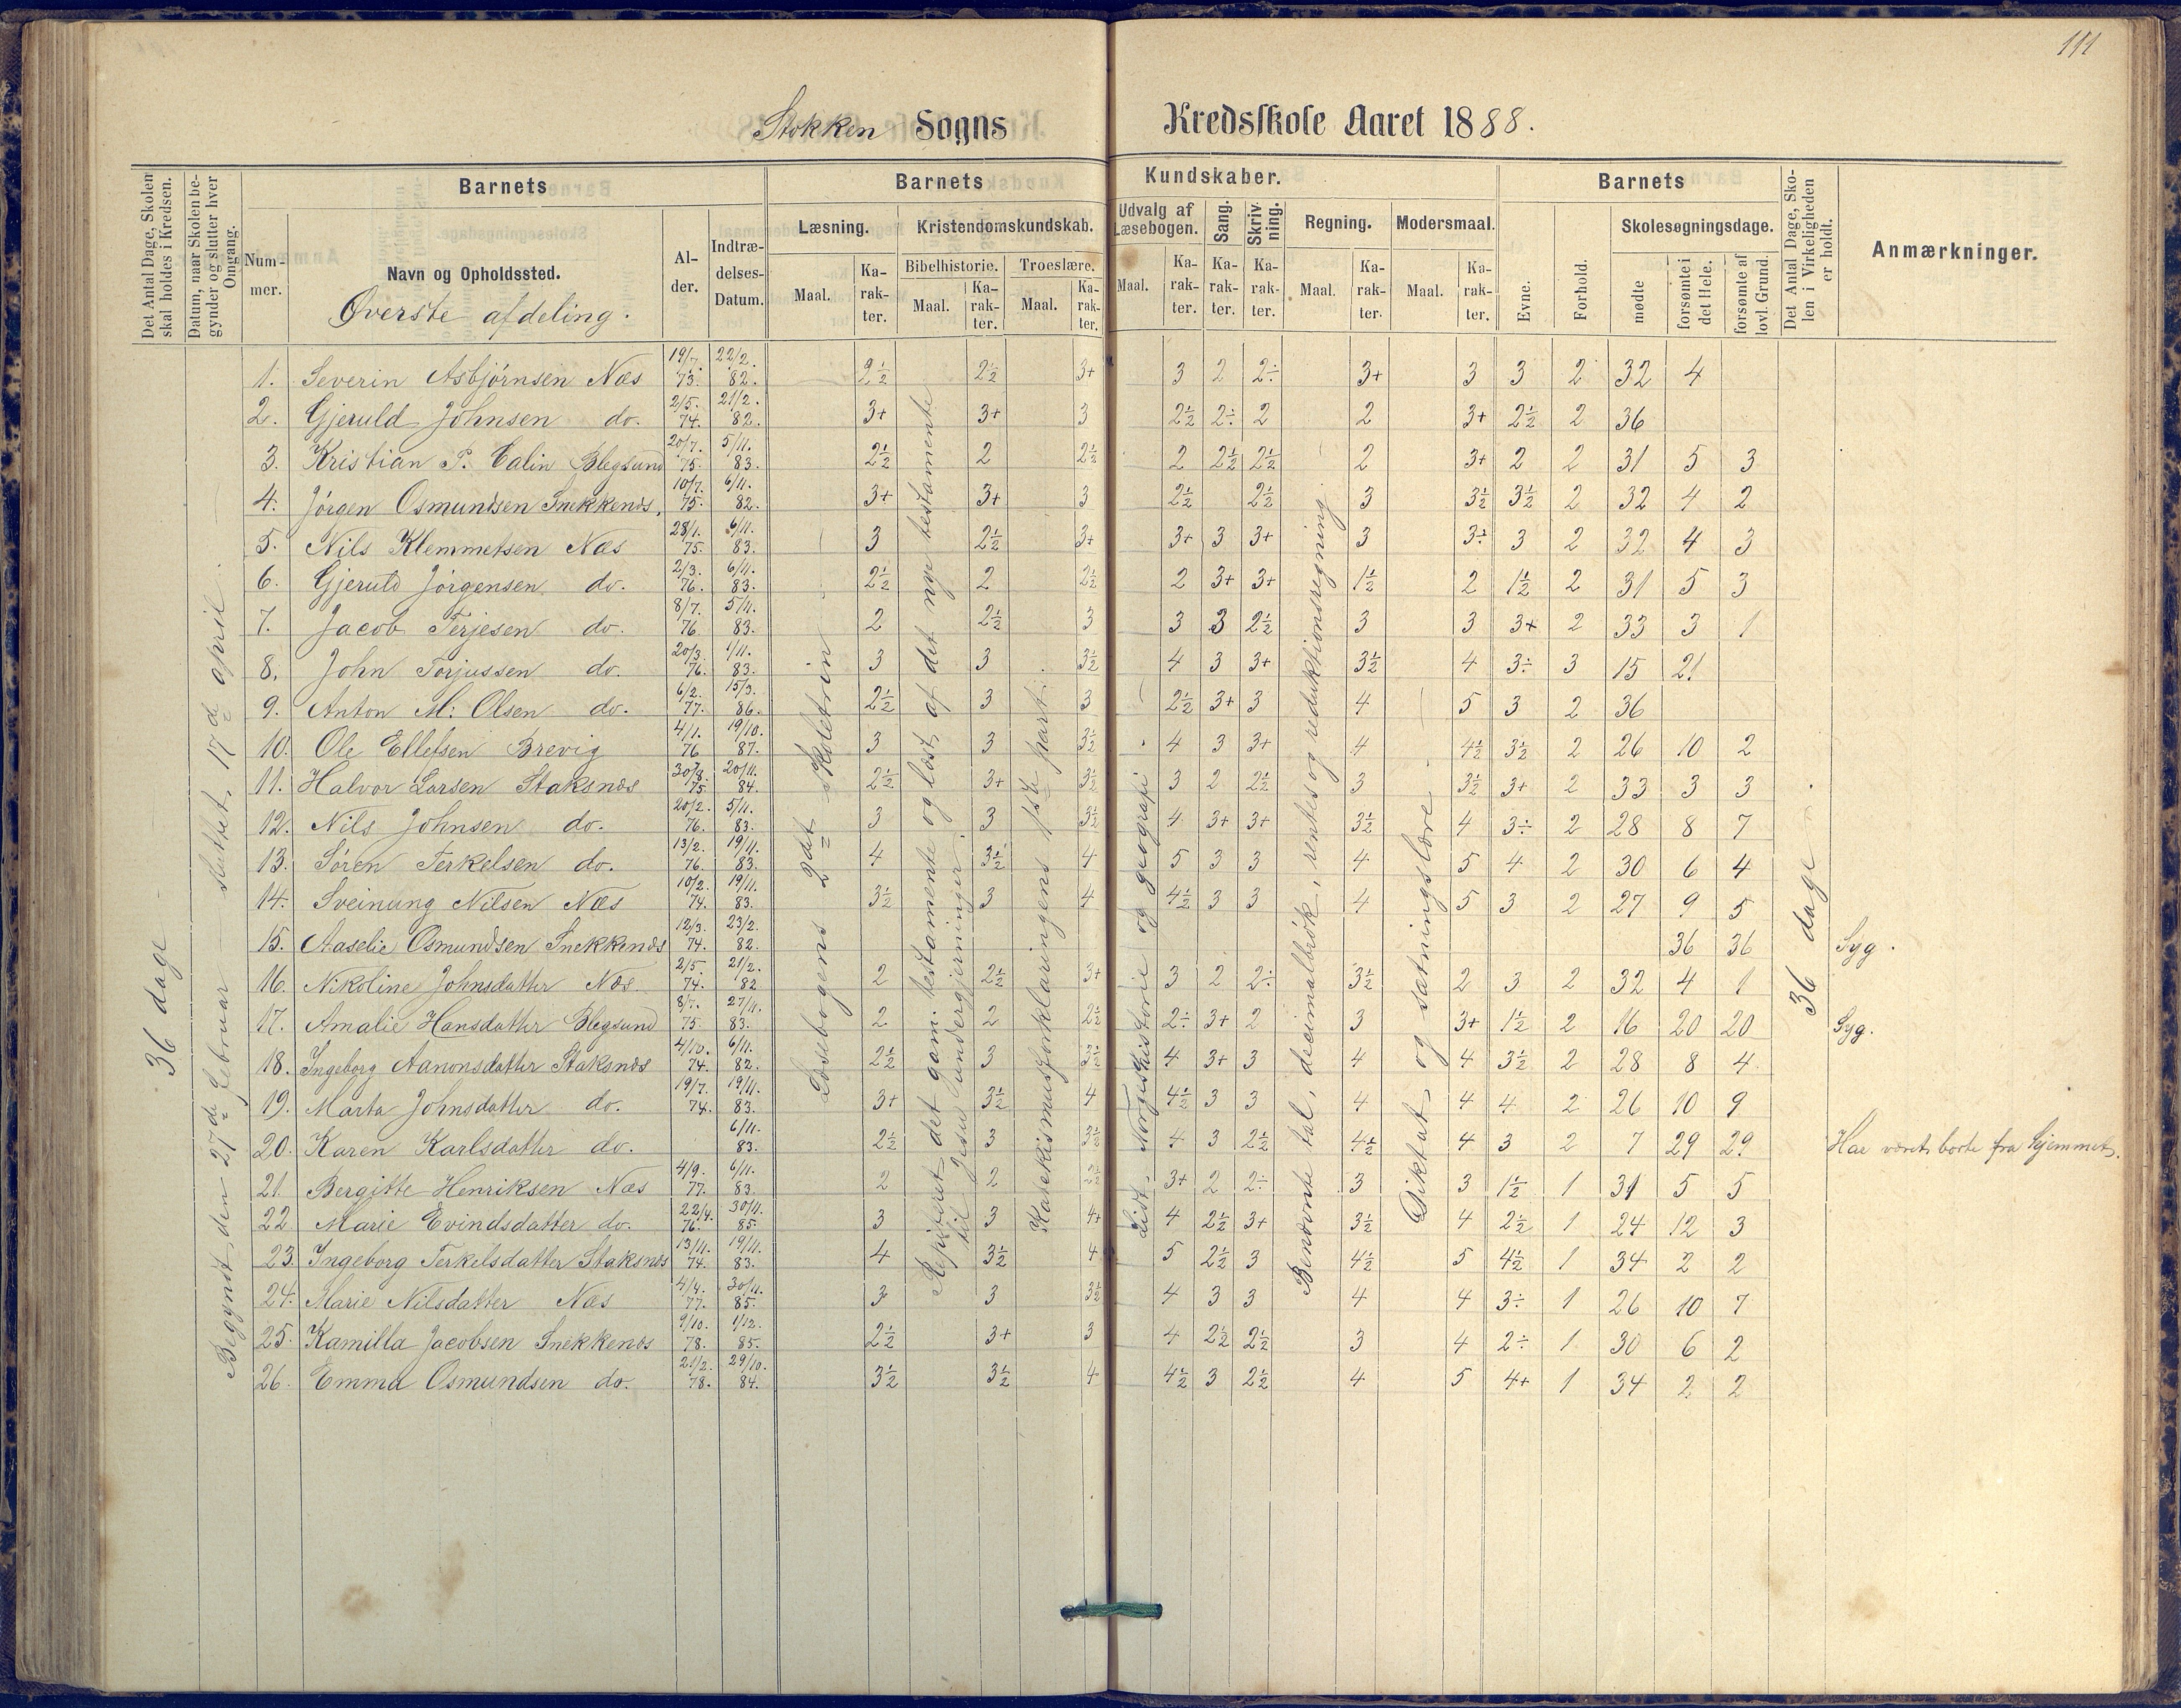 111
Stokken Sogns Kredsskole Aaret 1888.
Det Antal Dage, Skolen skal holdes i Kredsen.
Datum, naar Skolen begynder og slutter hver Omgang.
Barnets
Barnets Kundskaber.
Barnets
Det Antal Dage, Skolen i Virkeligheden er holdt.
Anmærkninger.
Nummer.
Navn og Opholdssted.
Øverste afdeling.
Alder.
Indtrædelses-Datum.
Læsning.
Kristendomskundskab.
Udvalg af Læsebogen.
Sang.
Skrivning.
Regning.
Modersmaal.
Evne.
Forhold.
Skolesøgningsdage.
Bibelhistorie.
Troeslære.
Maal.
Karakter.
Maal.
Karakter.
Maal.
Karakter.
Maal.
Karakter.
Karakter.
Karakter.
Maal.
Karakter.
Maal.
Karakter.
mødte
forsømte i det Hele.
forsømte af lovl. Grund.
36 dage
Begyndt den 27de februar – sluttet 17d april.
Læsebogens 2det skoletrin
Repiteret det gam. testamente og læst af det nye testamente til Jesu undergjerninger.
Katekismusforklaringens 1ste part.
Lidt Norgeshistorie og geografi
Benævnte tal, decimalbrøk, rentes og reduktionsregning.
Diktat og sætningslære
36 dage
1. Severin Asbjørnsen Næs 19/7. 73. 22/2. 82. 2½ 2½ 3+ 3 2 2÷ 3+ 3 3 2 32 4
2. Gjeruld Johnsen do. 2/5. 74. 21/2. 82. 3+ 3+ 3 2½ 2÷ 2 2 3+ 2½ 2 36
3. Kristian P. Calin Blegsund 20/7. 75. 5/11. 83. 2½ 2 2½ 2 2½ 2½ 2 3+ 2 2 31 5 3
4. Jørgen Osmundsen Snekkenæs, 10/7. 75. 6/11. 82. 3+ 3+ 3 2½ 2½ 3 3½ 3½ 2 32 4 2
5. Nils Klemmetsen Næs 28/1. 75. 6/11. 83. 3 2½ 3+ 3+ 3 3+ 3 3÷ 3 2 32 4 3
6. Gjeruld Jørgensen do. 2/3. 76. 6/11. 83. 2½ 2 2½ 2 3+ 3+ 1½ 2 1½ 2 31 5 3
7. Jacob Terjesen do. 8/7. 76. 5/11. 83. 2 2½ 3 3 3 2½ 3 3 3+ 2 33 3 1
8. John Torjussen do. 20/3. 76. 1/11. 83. 3 3 3½ 4 3 3+ 3½ 4 3÷ 3 15 21
9. Anton M: Olsen do. 6/2. 77. 15/3. 86. 2½ 3 3 2½ 3+ 3 4 5 3 2 36
10. Ole Ellefsen Brevig 4/1. 76 19/10. 87. 3 3 3½ 4 3 3+ 4 4½ 3½ 2 26 10 2
11. Halvor Larsen Staksnæs 30/8. 75 20/11. 84. 2½ 3+ 3½ 3 2 2½ 3 3½ 3+ 2 33 3 3
12. Nils Johnsen do. 20/2. 76. 5/11. 83. 3 3 3½ 4 3+ 3+ 3½ 4 3÷ 2 28 8 7
13. Søren Terkelsen do. 13/2. 76. 19/11. 83. 4 3½ 4 5 3 3 4 5 4 2 30 6 4
14. Sveinung Nilsen Næs 10/2. 74. 19/11. 83. 3½ 3 4 4½ 3 3 4 5 3 2 27 9 5
15. Aaselie Osmundsen Snekkenæs 12/3. 74. 23/2. 82. 36 36 Syg.
16. Nikoline Johnsdatter Næs 2/5. 74. 21/2. 82 2 2½ 3+ 3 2 2÷ 3½ 2 3 2 32 4 1
17. Amalie Hansdatter Blegsund 8/7. 75. 27/11. 83. 2 2 2½ 2÷ 3+ 2 3 3+ 1½ 2 16 20 20 Syg.
18. Ingeborg Aanonsdatter Staksnæs 4/10. 74. 6/11. 82. 2½ 3 3½ 4 3+ 3 4 4 3½ 2 28 8 4
19. Marta Johnsdatter do. 19/7. 74. 19/11. 83. 3+ 3½ 4 4½ 3 3 4 4 4 2 26 10 9
20. Karen Karlsdatter do. 6/11. 83. 2½ 3 3½ 4 3 2½ 4½ 4 3 2 7 29 29 Har været borte fra hjemmet.
21. Bergitte Henriksen Næs 4/9. 77. 6/11. 83. 2 2 2½ 3+ 2 2÷ 3 3 1½ 1 31 5 5
22 Marie Evindsdatter do. 22/4. 76. 30/11. 85. 3 3 4+ 4 2½ 3+ 3½ 4 2½ 1 24 12 3
23. Ingeborg Terkelsdatter Staksnæs 13/11. 74. 19/11. 83. 4 3½ 4 5 2½ 3 4½ 5 4½ 1 34 2 2
24. Marie Nilsdatter Næs 4/4. 77. 30/11. 85. 3 3 3½ 4 3 3 4 4 3÷ 1 26 10 7
25. Kamilla Jacobsen Snekkenæs 9/10. 78. 1/12. 85. 2½ 3+ 3 4 2½ 2½ 3 4 2÷ 1 30 6 2
26. Emma Osmundsen do. 21/2. 78. 29/10. 84. 3½ 3½ 4 4½ 3 2½ 4 5 4+ 1 34 2 2